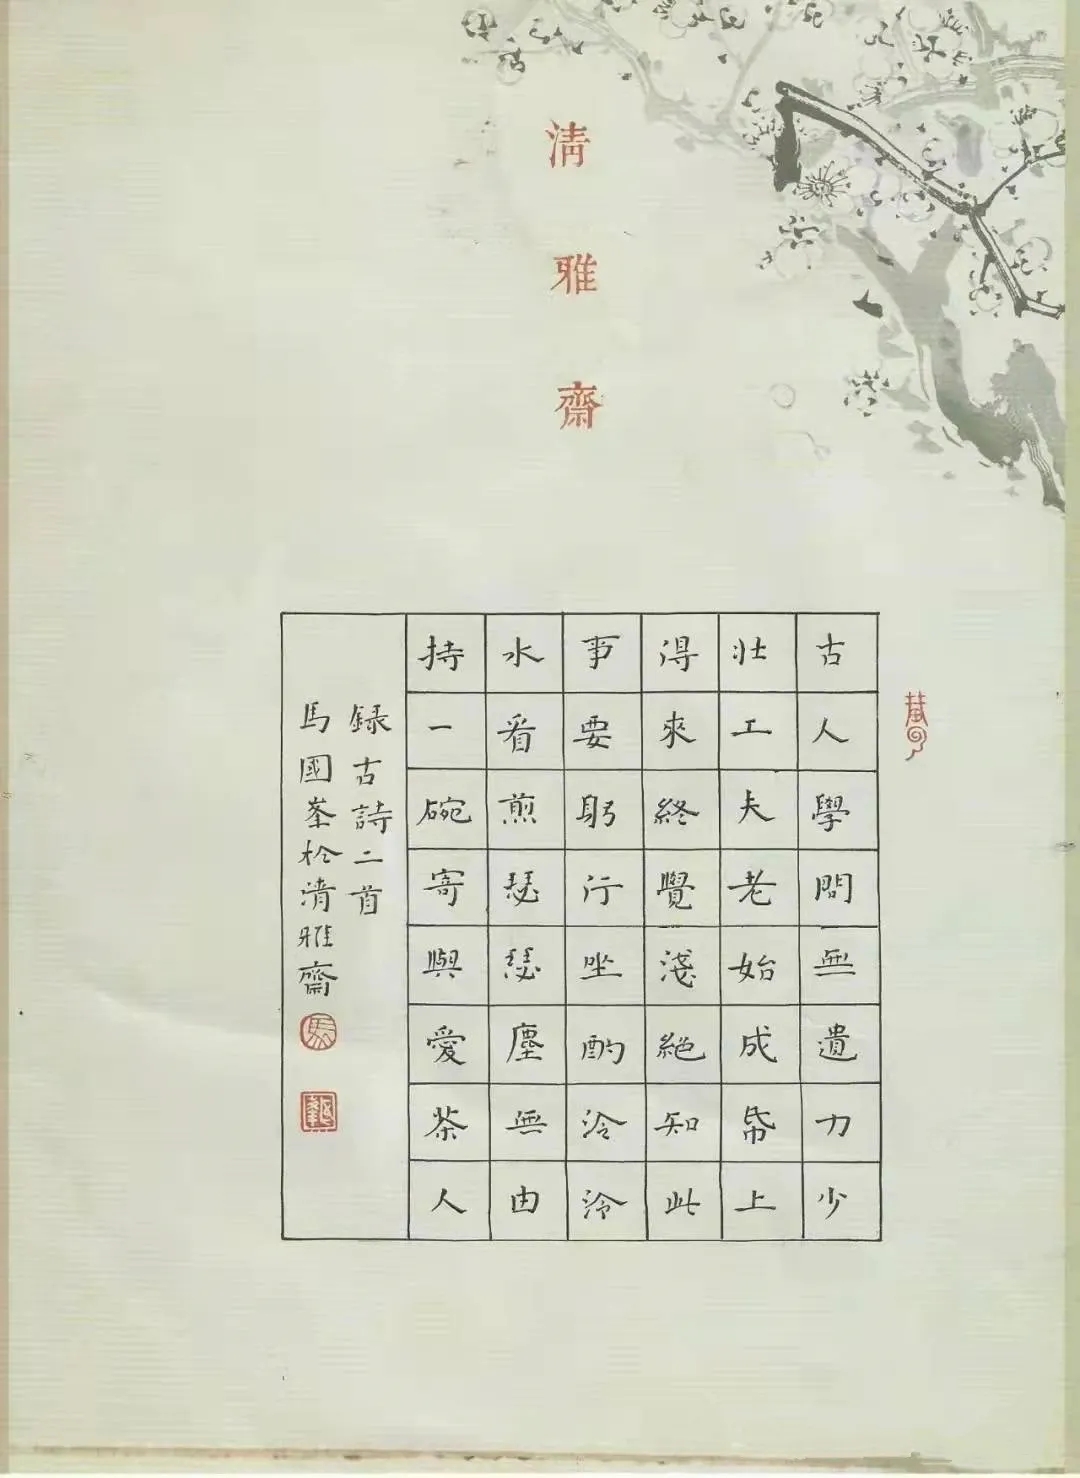 清雅齋
古人學問無遺力少
壯工夫老始成帋上
得來終覺淺絕知此
事要躬行坐酌泠泠
水看煎瑟瑟塵無由
持一碗寄與愛茶人
錄古詩二首
馬國峯於清雅齋
馬